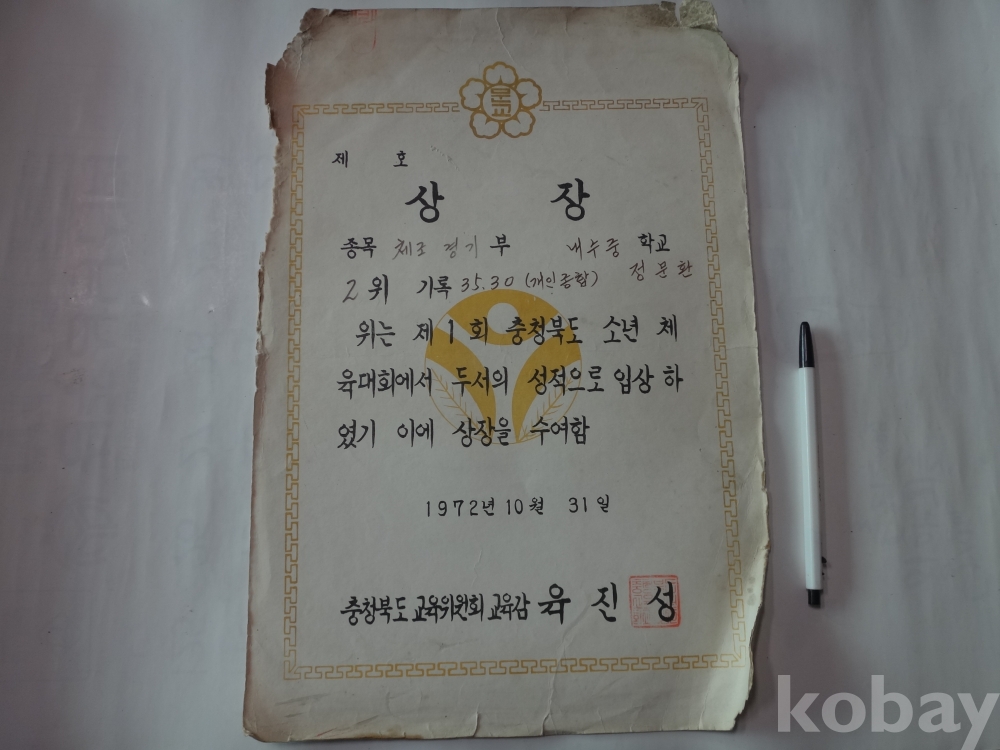 문교
제 호
상 장
종목 체조 경기 부 내수중 학교
2 위 기록 35.30 (개인종합) 정문환
위는 제 1 회 충청북도 소년 체
육대회에서 두서의 성적으로 입상 하
였기 이에 상장을 수여함
1972년 10월 31일
충청북도 교육위원회 교육감 육 진 성
kobay